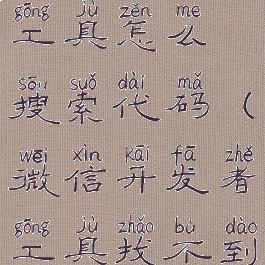 gōng jù zěn me
工具怎么
sōu suǒ dài mǎ
搜索代码（
wēi xìn kāi fā zhě
微信开发者
gōng jù zhǎo bù dào
工具找不到